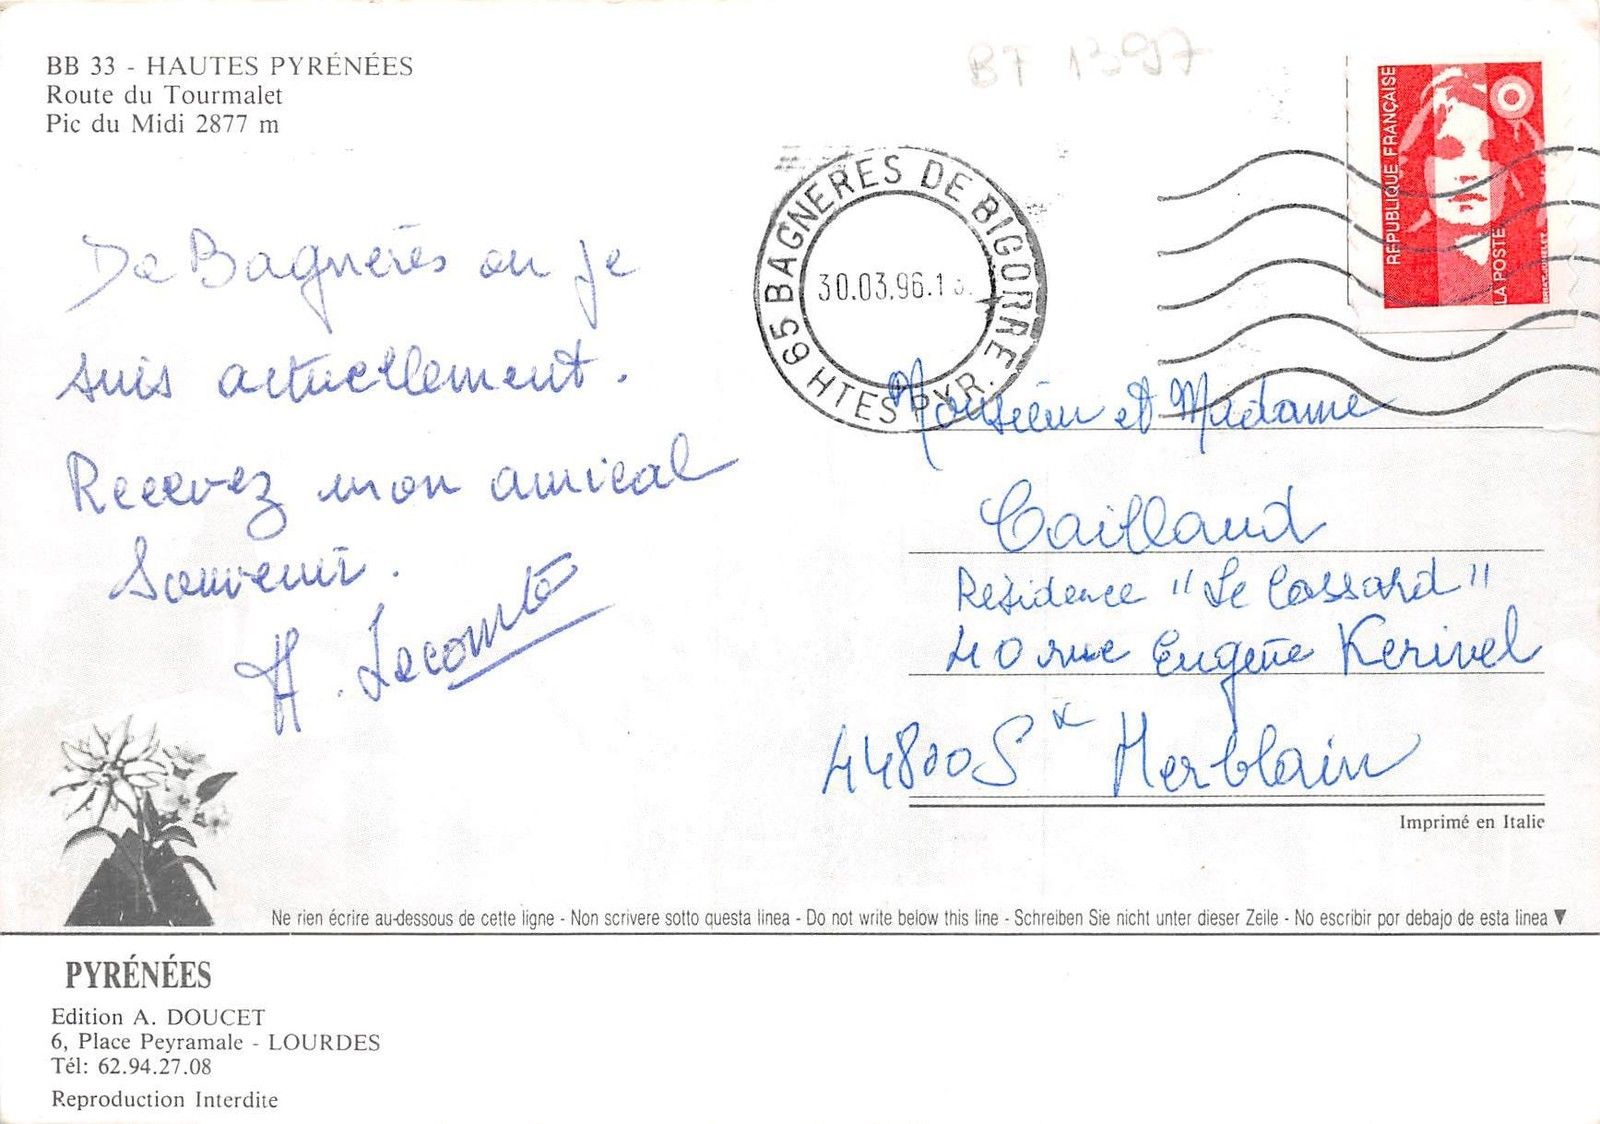 BB 33 - HAUTES PYRÉNÉES
Route du Tourmalet
Pic du Midi 2877 m
BT 1397
RÉPUBLIQUE FRANÇAISE
LA POSTE
65 BAGNERES DE BIGORRE
HTES PYR.
30.03.96.1
De Bagnères ou je
suis actuellement.
Recevez mon amical
Souvenir.
H. Lecomte
Monsieur et Madame
Caillaud
Résidence "Le Cossard"
40 rue Eugène Kerivel
44800 St Herblain
Imprimé en Italie
Ne rien écrire au-dessous de cette ligne - Non scrivere sotto questa linea - Do not write below this line - Schreiben Sie nicht unter dieser Zeile - No escribir por debajo de esta linea ▼
PYRÉNÉES
Edition A. DOUCET
6, Place Peyramale - LOURDES
Tél: 62.94.27.08
Reproduction Interdite